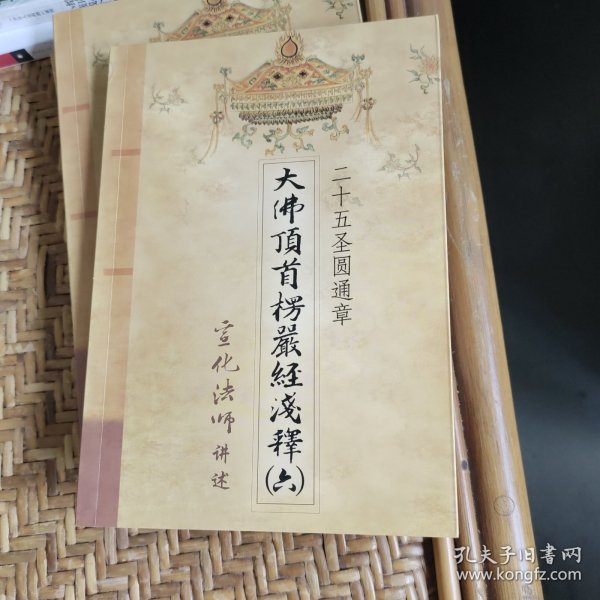 二十五圣圆通章
大佛頂首楞嚴經淺釋(六)
宣化法师 讲述
孔夫子旧书网
www.kongfz.com